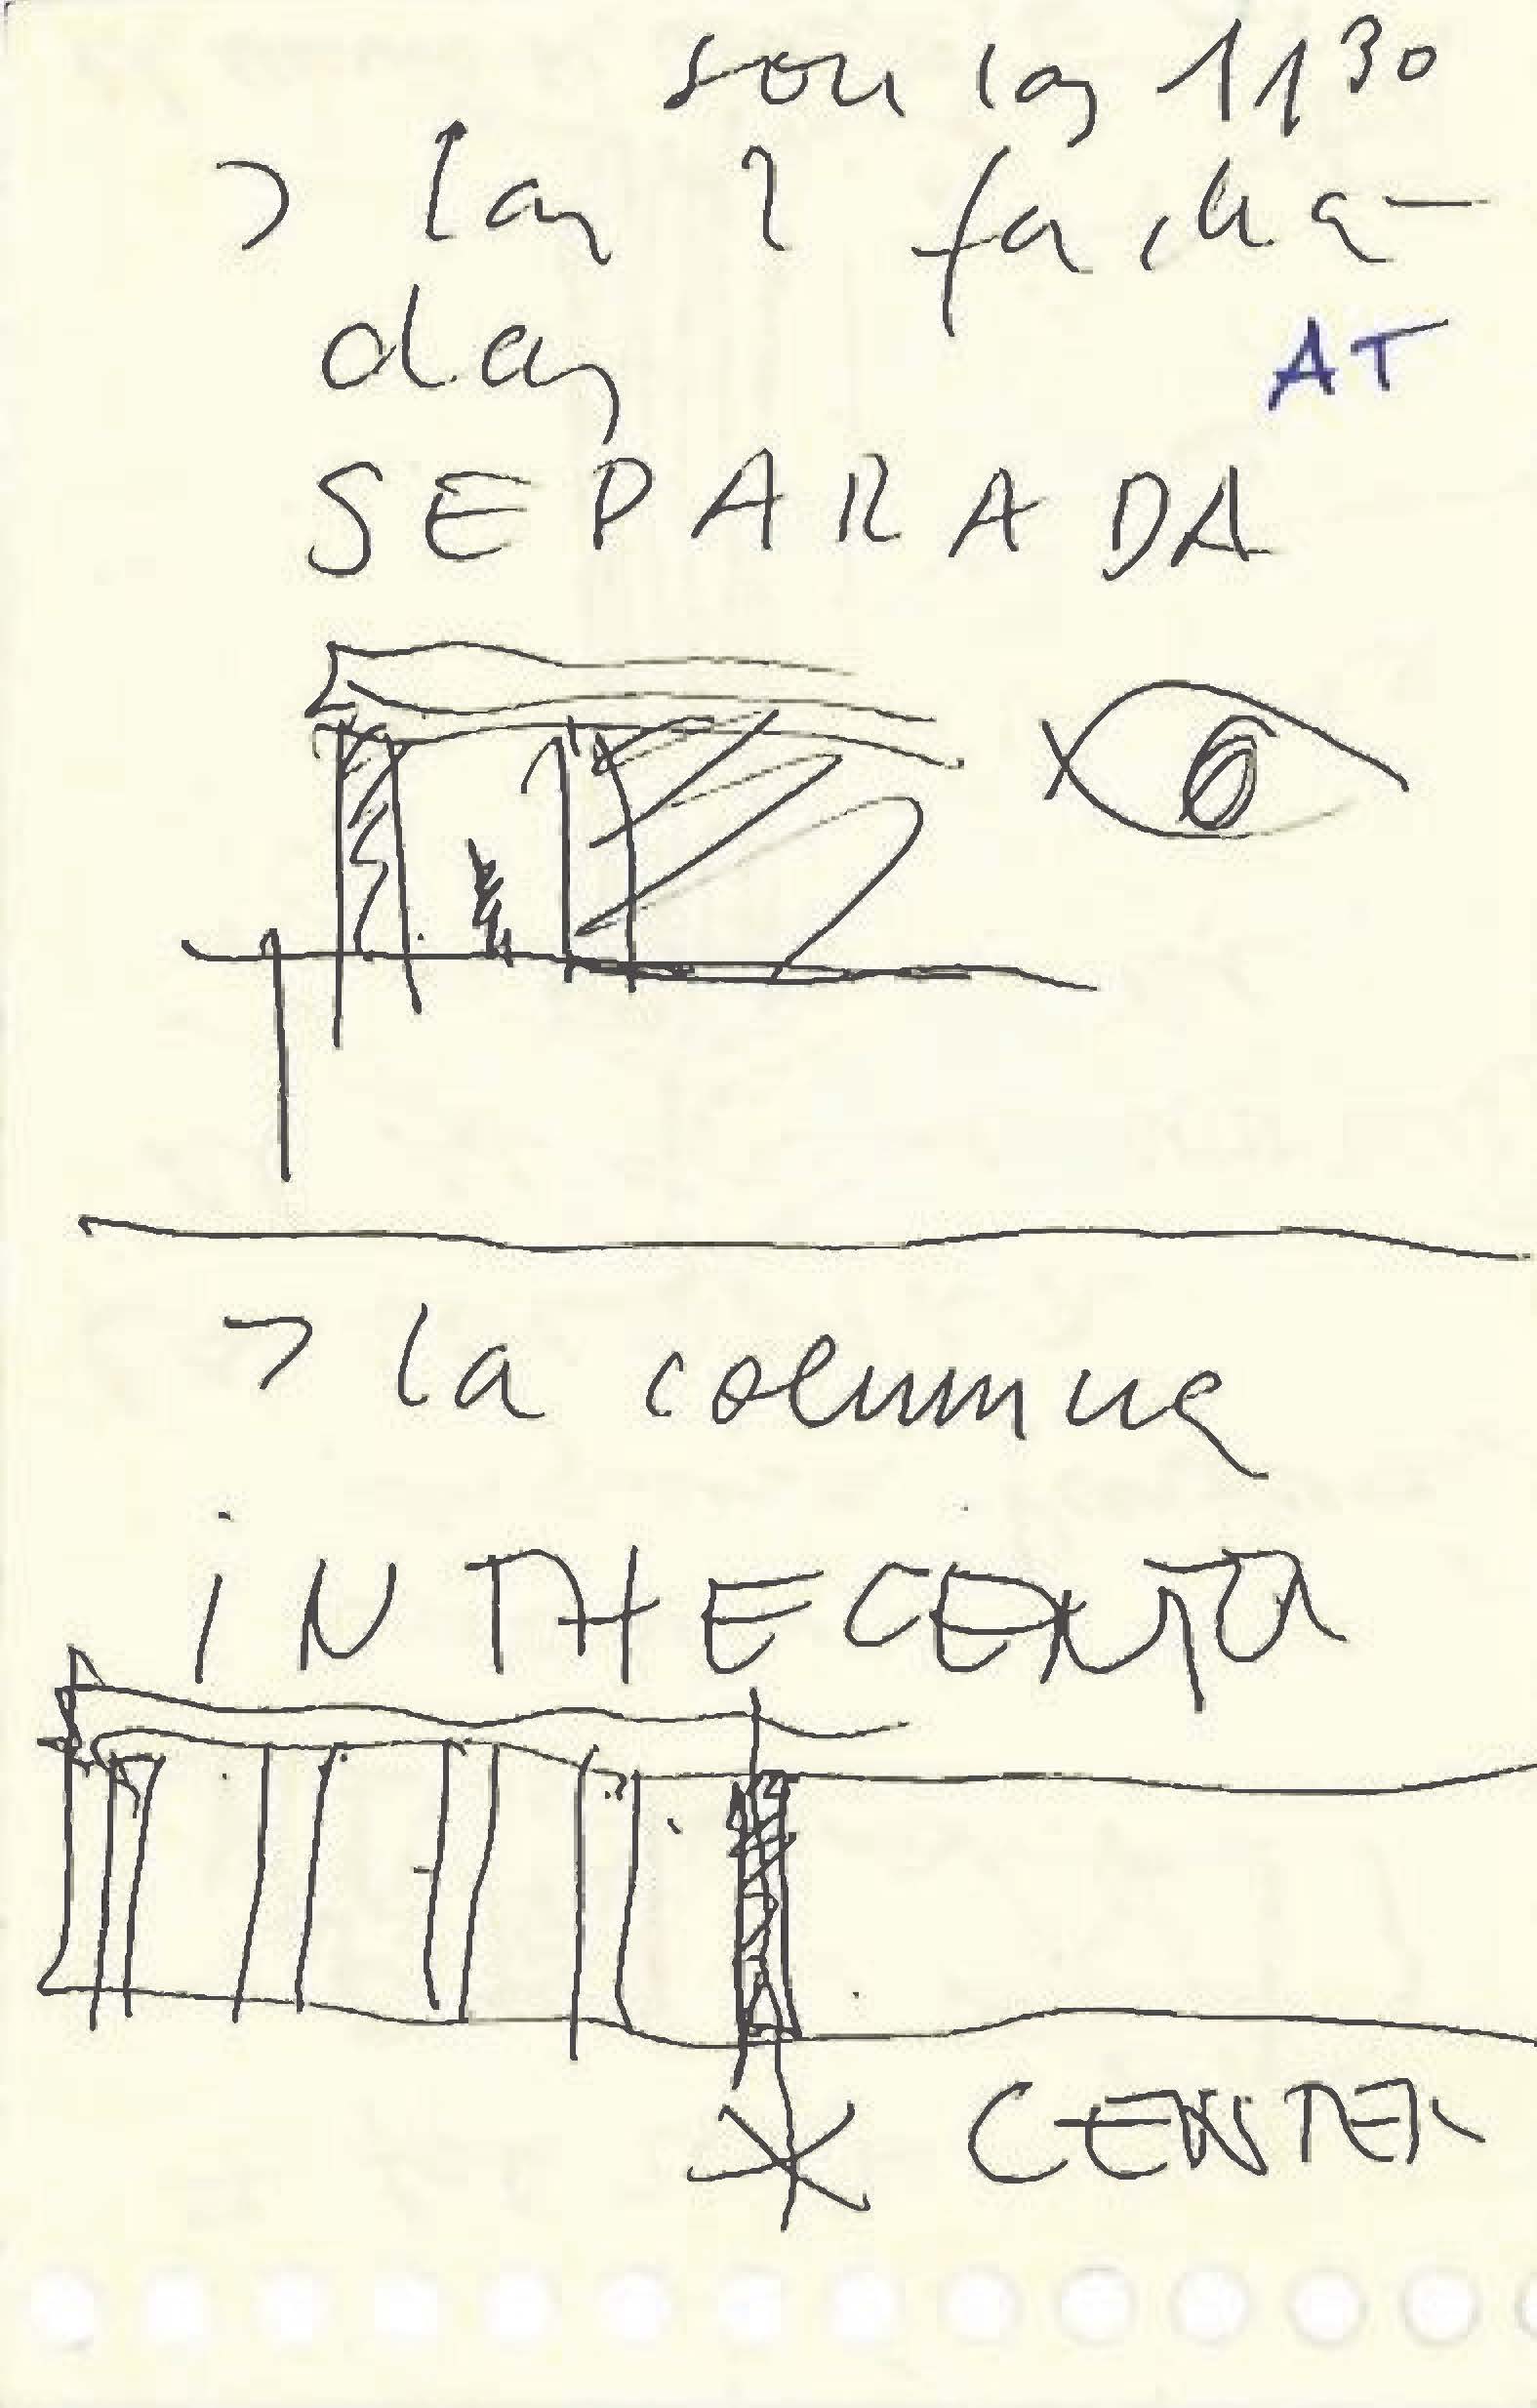 son las 11³⁰
> las 2 facha-
das
AT
SEPARADA
> la columna
iN THE CENTR
CENTER